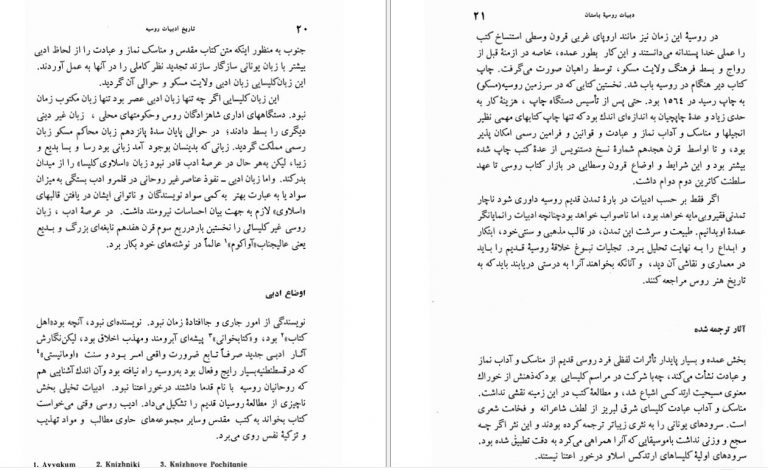 ۲۰ تاریخ ادبیات روسیه
جنوب به منظور اینکه متن کتاب مقدس و مناسک نماز و عبادت را از لحاظ ادبی
بیشتر با زبان یونانی سازگار سازند تجدید نظر کاملی را در آنها به عمل آوردند.
این زبان‌کلیسایی زبان ادبی ولایت مسکو و حوالی آن گردید.
این زبان کلیسایی اگر چه تنها زبان ادبی عصر بود تنها زبان مکتوب زمان
نبود. دستگاههای اداری شاهزادگان روس وحکومتهای محلی ، زبان غیر دینی
دیگری را بسط دادند؛ در حوالی پایان سدهٔ پانزدهم زبان محاکم مسکو زبان
رسمی مملکت گردید. زبانی که بدینسان بوجود آمد زبانی بود رسا و بسا بدیع و
زیبا، لیکن به‌هر حال در عرصهٔ ادب قادر نبود زبان «اسلاوی کلیسا» را از میدان
بدرکند. واما زبان ادبی ـ نفوذ عناصرغیر روحانی در قلمرو ادب بستگی به میزان
سواد یا به عبارت بهتر به‌کمی سواد نویسندگان و ناتوانی ایشان در یافتن قالبهای
«اسلاوی» لازم به جهت بیان احساسات نیرومند داشت. در عرصهٔ ادب ، زبان
روسی غیر کلیسائی را نخستین باردرربع سوم قرن هفدهم نابغه‌ای بزرگ و بدیع
یعنی عالیجناب«آواکوم»۱ عالماً در نوشته‌های خود بکار برد.
اوضاع ادبی
نویسندگی از امور جاری و جاافتادهٔ زمان نبود. نویسنده‌ای نبود، آنچه بود«اهل
کتاب»۲ بود، و«کتابخوانی»۳ پیشه‌ای آبرومند ومهذب اخلاق بود، لیکن‌نگارش
آثار ادبی جدید صرفاً تابع ضرورت واقعی امر بود و سنت «اومانیستی»۴
که درقسطنطنیه‌بسیار رایج وفعال بود به‌روسیه راه نیافته بود وآن اندك آشنایی هم
که روحانیان روسیه با نام قدما داشتند درخور اعتنا نبود. ادبیات تخیلی بخش
ناچیزی از مطالعهٔ روسیان قدیم را تشکیل می‌داد. ادیب روسی وقتی می‌خواست
کتاب بخواند به کتب مقدس وسایر مجموعه‌های حاوی مطالب و مواد تهذیب
و تزکیهٔ نفس روی می‌برد.
1. Avvakum 2. Knizhniki 3. Knizhnoye Pochitanie
دبیات روسیهٔ باستان ۲۱
در روسیهٔ این زمان نیز مانند اروپای غربی قرون وسطی استنساخ کتب
را عملی خدا پسندانه می‌دانستند و این کار بطور عمده، خاصه در ازمنهٔ قبل از
رواج و بسط فرهنگ ولایت مسکو، توسط راهبان صورت می‌گرفت. چاپ
کتاب دیر هنگام در روسیه باب شد. نخستین کتابی که در سرزمین روسیه(مسکو)
به چاپ رسید در ۱۵۶۴ بود. حتی پس از تأسیس دستگاه چاپ ، هزینهٔ کار به
حدی زیاد و عدهٔ چاپچیان به اندازه‌ای اندك بود که تنها چاپ کتابهای مهمی نظیر
انجیلها و مناسک و آداب نماز و عبادت و قوانین و فرامین رسمی امکان پذیر
بود، و تا اواسط قرن هجدهم شمارهٔ نسخ دستنویس از عدهٔ کتب چاپ شده
بیشتر بود و این شرایط و اوضاع قرون وسطایی در بازار کتاب روسی تا عهد
سلطنت کاترین دوم دوام داشت.
اگر فقط بر حسب ادبیات در بارهٔ تمدن قدیم روسیه داوری شود ناچار
تمدنی‌فقیروبی‌مایه خواهد بود، اما ناصواب خواهد بودچنانچه ادبیات رانمایانگر
عمدهٔ اوبدانیم. طبیعت و سرشت این تمدن، در قالب مذهبی و سنتی‌خود، ابتکار
و ابداع را به نهایت تحلیل برد. تجلیات نبوغ خلاقهٔ روسیهٔ قدیم را باید
در معماری و نقاشی آن دید، و آنانکه بخواهند آنرا به درستی دریابند باید که به
تاریخ هنر روس مراجعه کنند.
آثار ترجمه شده
بخش عمده و بسیار پایدار تأثرات لفظی فرد روسی قدیم از مناسک و آداب نماز
و عبادت نشأت می‌کند، چه‌با شرکت در مراسم کلیسایی بود که‌ذهنش از خوراك
معنوی مسیحیت ارتدکسی اشباع شد، و مطالعهٔ کتب در این زمینه نقشی نداشت.
مناسک و آداب عبادت کلیسای شرق لبریز از لطف شاعرانه و فخامت شعری
است. سرودهای یونانی را به نثری زیباتر ترجمه کرده بودند و این نثر اگر چه
سجع و وزنی نداشت باموسیقایی که آنرا همراهی می‌کرد به دقت تطبیق شده بود.
سرودهای اولیهٔ کلیساهای ارتدکس اسلاو درخور اعتنا نیستند.